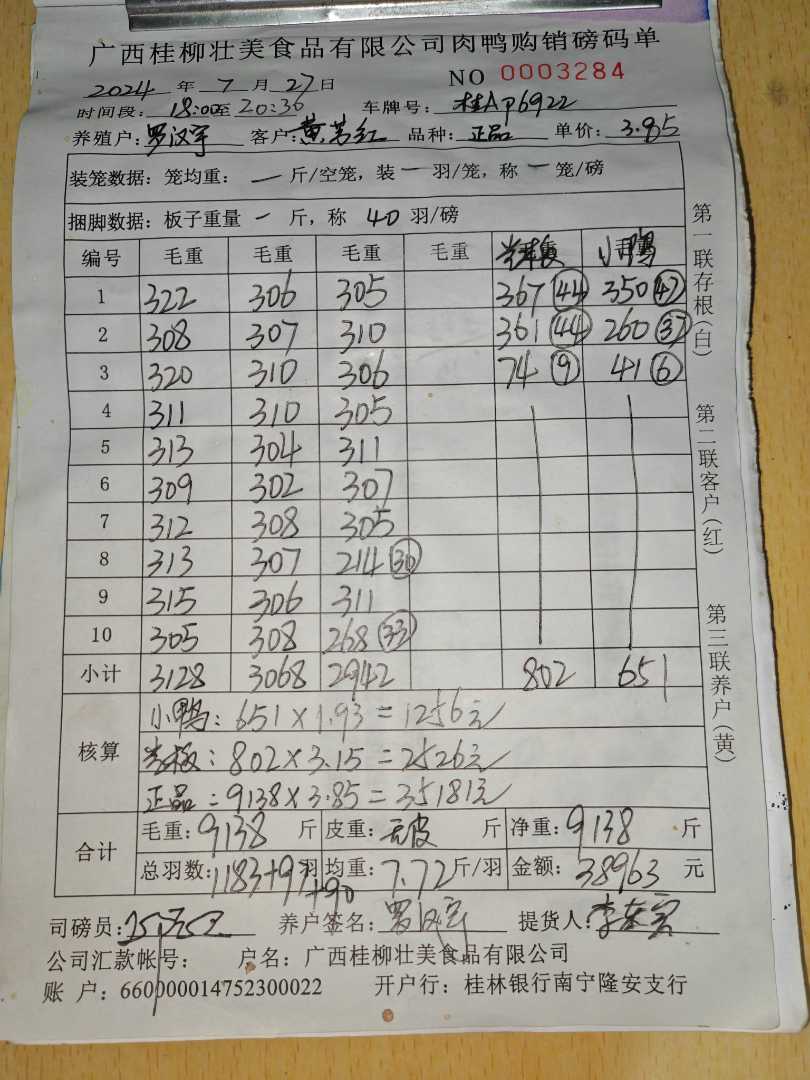 广西桂柳壮美食品有限公司肉鸭购销磅码单
2024 年 7 月 27 日 NO 0003284
时间段: 18:00至20:36 车牌号: 桂AP6922
养殖户: 罗汉宇 客户: 黄芳红 品种: 正品 单价: 3.85
装笼数据: 笼均重: 一 斤/空笼, 装 一 羽/笼, 称 一 笼/磅
捆脚数据: 板子重量 一 斤, 称 40 羽/磅
编号 毛重 毛重 毛重 毛重 光板 小鸭
1 322 306 305 367 (44) 350 (47)
2 308 307 310 361 (44) 260 (37)
3 320 310 306 74 (9) 41 (6)
4 311 310 305
5 313 304 311
6 309 302 307
7 312 308 305
8 313 307 214 (30)
9 315 306 311
10 305 308 268 (33)
小计 3128 3068 2942 802 651
核算 小鸭: 651×1.93=1256元
光板: 802×3.15=2526元
正品: 9138×3.85=35181元
合计 毛重: 9138 斤 皮重: 无皮 斤 净重: 9138 斤
总羽数: 1183+97+90 羽 均重: 7.72 斤/羽 金额: 38963 元
司磅员: 养户签名: 罗汉宇 提货人: 李
公司汇款帐号: 户名: 广西桂柳壮美食品有限公司
账 户: 660000014752300022 开户行: 桂林银行南宁隆安支行
第一联存根(白)
第二联客户(红)
第三联养户(黄)